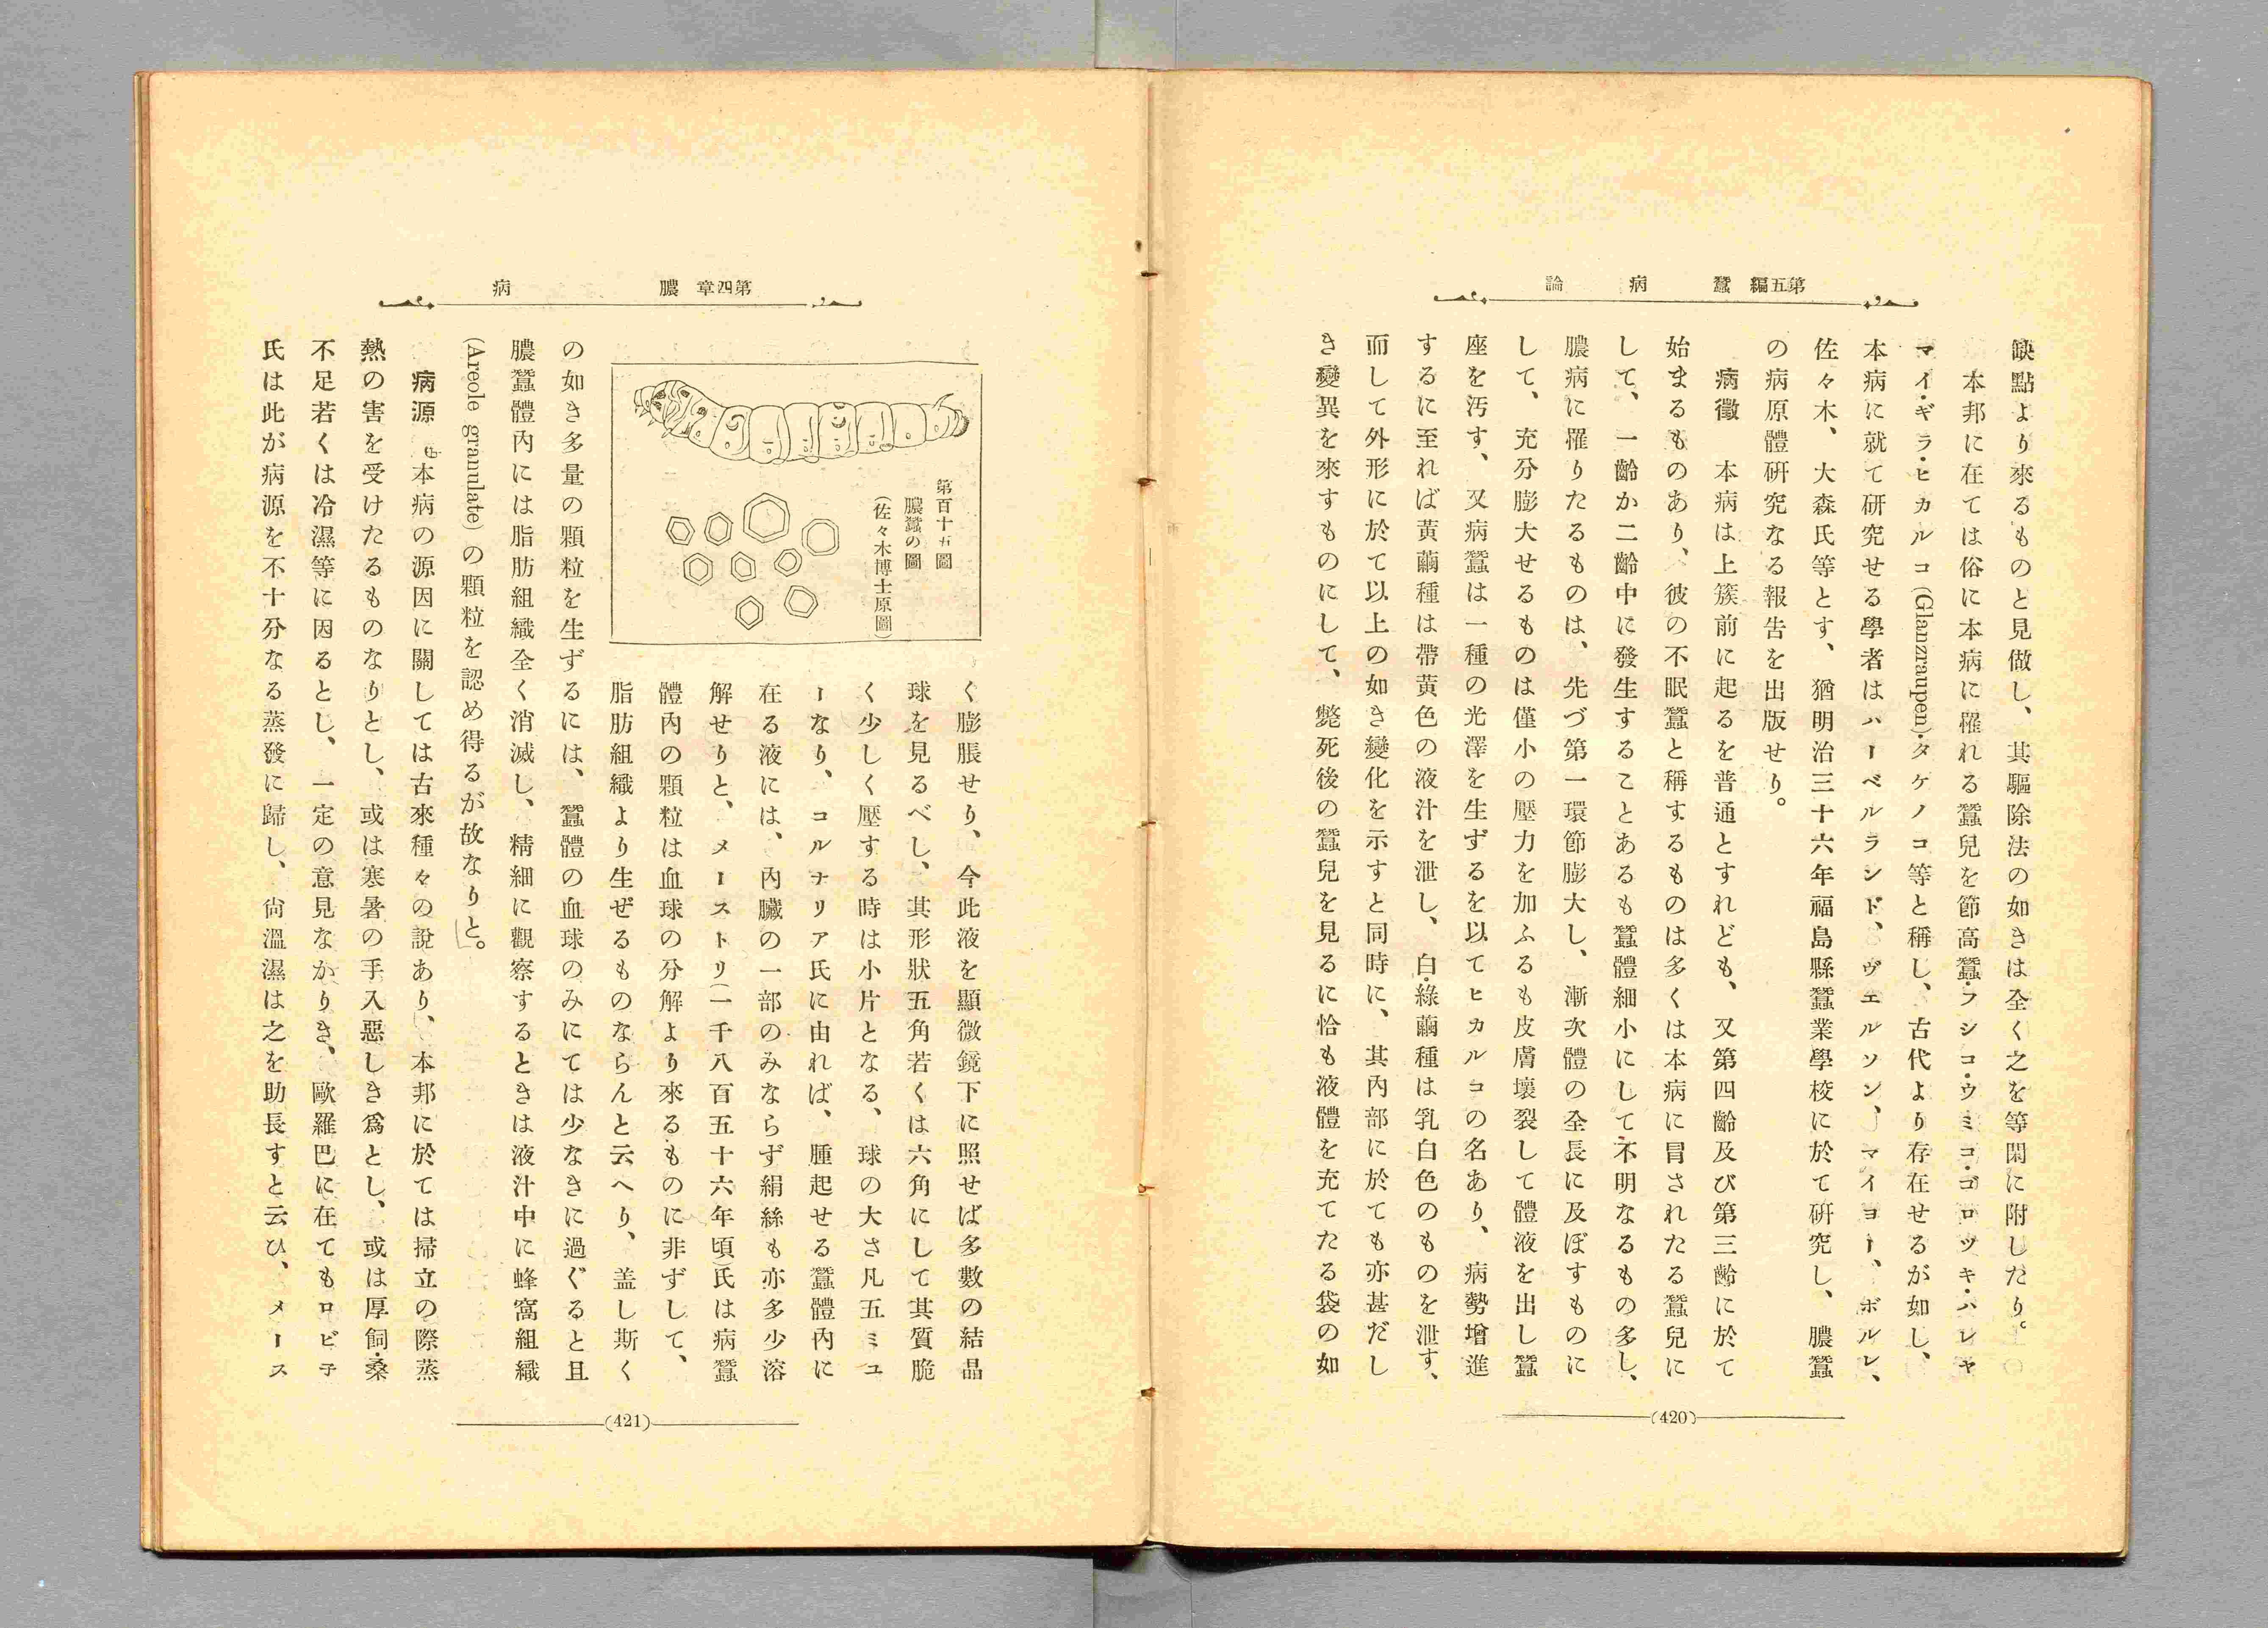 第五編 蠶病論
缺點より來るものと見做し、其驅除法の如きは全く之を等閑に附したり。
本邦に在ては俗に本病に罹れる蠶兒を節高蠶・フシコ・ウミコ・ゴロツキ・ハレヤ
マイ・ギラ・ヒカルコ(Glanzraupen)・タケノコ等と稱し、古代より存在せるが如し、
本病に就て硏究せる學者はハーベルランド、ヴエルソン、マイヨー、ボルレ、
佐々木、大森氏等とす、猶明治三十六年福島縣蠶業學校に於て硏究し、膿蠶
の病原體硏究なる報告を出版せり。
病徵 本病は上簇前に起るを普通とすれども、又第四齡及び第三齡に於て
始まるものあり、彼の不眠蠶と稱するものは多くは本病に冒されたる蠶兒に
して、一齡か二齡中に發生することあるも蠶體細小にして不明なるもの多し、
膿病に罹りたるものは、先づ第一環節膨大し、漸次體の全長に及ぼすものに
して、充分膨大せるものは僅小の壓力を加ふるも皮膚壞裂して體液を出し蠶
座を汚す、又病蠶は一種の光澤を生ずるを以てヒカルコの名あり、病勢增進
するに至れば黃繭種は帶黃色の液汁を泄し、白・綠繭種は乳白色のものを泄す、
而して外形に於て以上の如き變化を示すと同時に、其內部に於ても亦甚だし
き變異を來すものにして、斃死後の蠶兒を見るに恰も液體を充てたる袋の如
(420)
第四章 膿病
第百十五圖
膿蠶の圖
(佐々木博士原圖)
く膨脹せり、今此液を顯微鏡下に照せば多數の結晶
球を見るべし、其形狀五角若くは六角にして其質脆
く少しく壓する時は小片となる、球の大さ凡五ミユ
ーなり、コルナリア氏に由れば、腫起せる蠶體內に
在る液には、內臟の一部のみならず絹絲も亦多少溶
解せりと、メーストリ(一千八百五十六年頃)氏は病蠶
體內の顆粒は血球の分解より來るものに非ずして、
脂肪組織より生ぜるものならんと云へり、盖し斯く
の如き多量の顆粒を生ずるには、蠶體の血球のみにては少なきに過ぐると且
膿蠶體內には脂肪組織全く消滅し、精細に觀察するときは液汁中に蜂窩組織
(Areole granulate)の顆粒を認め得るが故なりと。
病源 本病の源因に關しては古來種々の說あり、本邦に於ては掃立の際蒸
熱の害を受けたるものなりとし、或は寒暑の手入惡しき爲とし、或は厚飼・桑
不足若くは冷濕等に因るとし、一定の意見なかりき、歐羅巴に在てもロビテ
氏は此が病源を不十分なる蒸發に歸し、尙溫濕は之を助長すと云ひ、メース
(421)